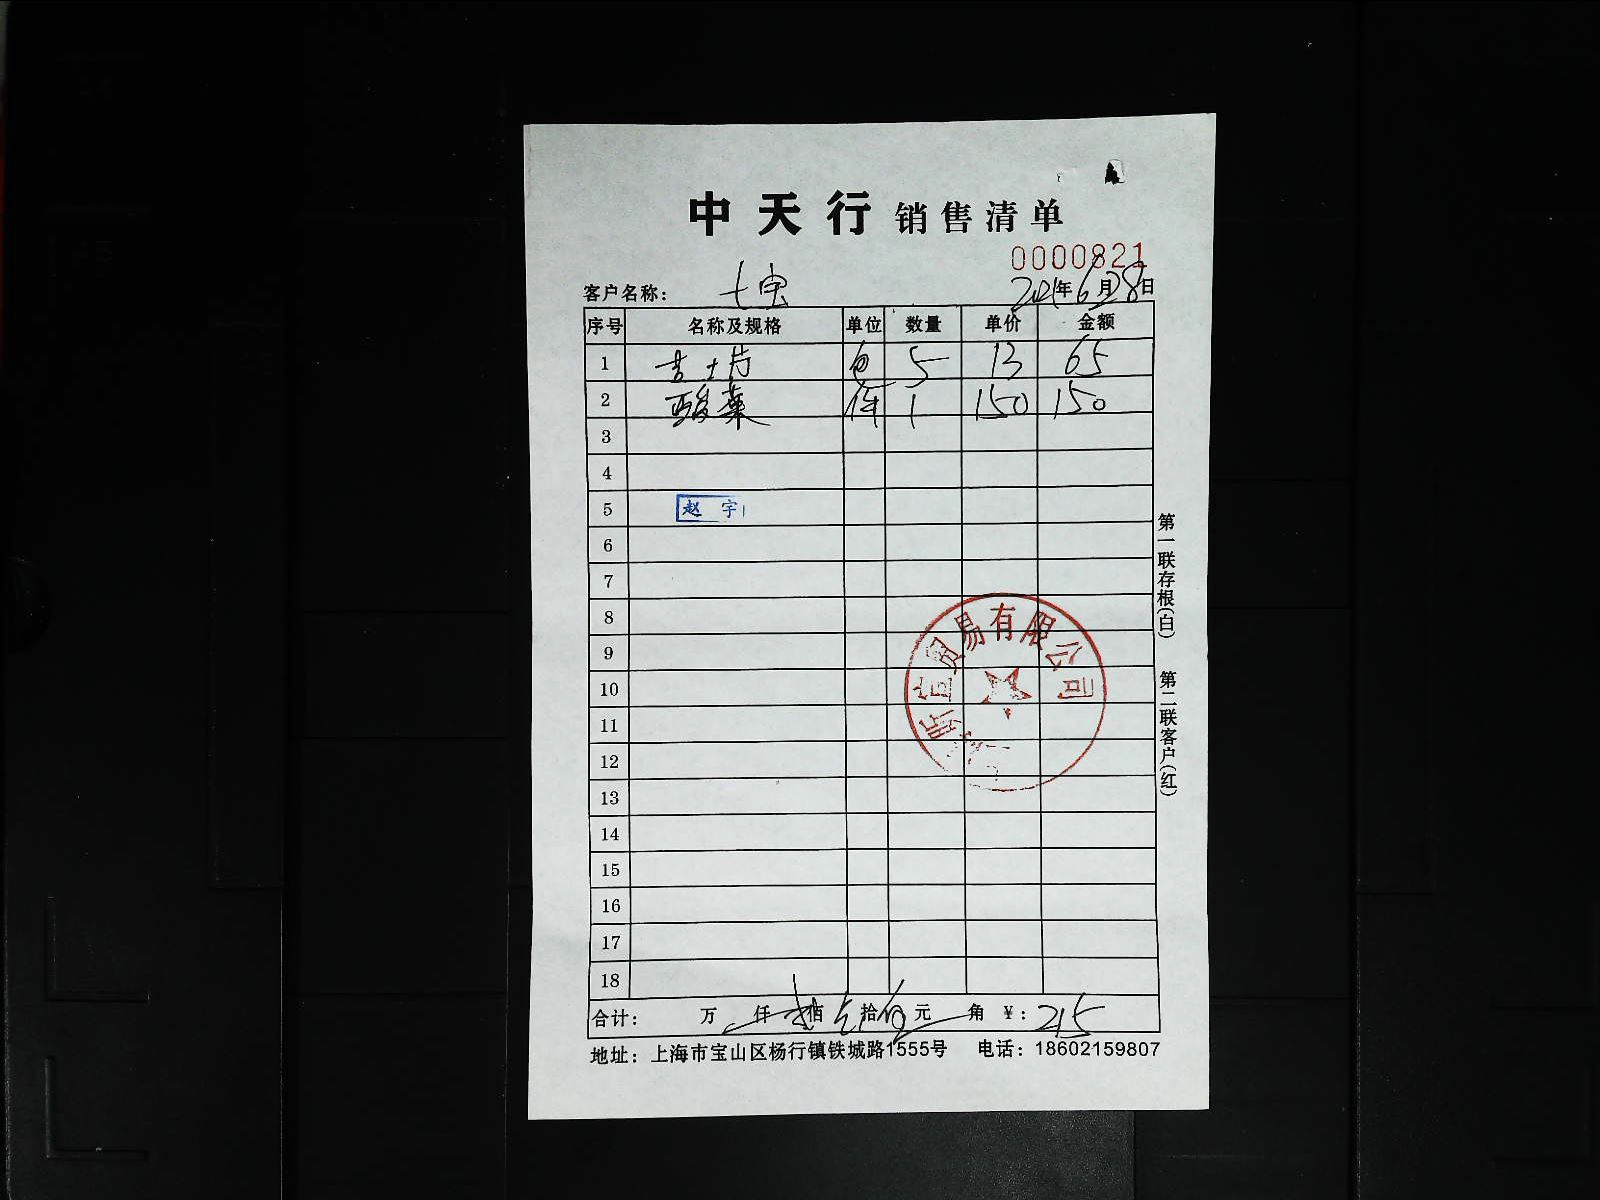 中天行 销售清单
0000821
客户名称: 七宝 2021年6月28日
序号 名称及规格 单位 数量 单价 金额
1 吉士片 包 5 13 65
2 酸菜 件 1 150 150
3
4
5 赵宇
6
7
8
9
10
11
12
13
14
15
16
17
18
贸易有限公司
合计: 万 仟 贰佰 拾 元 角 ¥: 215
地址: 上海市宝山区杨行镇铁城路1555号 电话: 18602159807
第一联存根(白) 第二联客户(红)